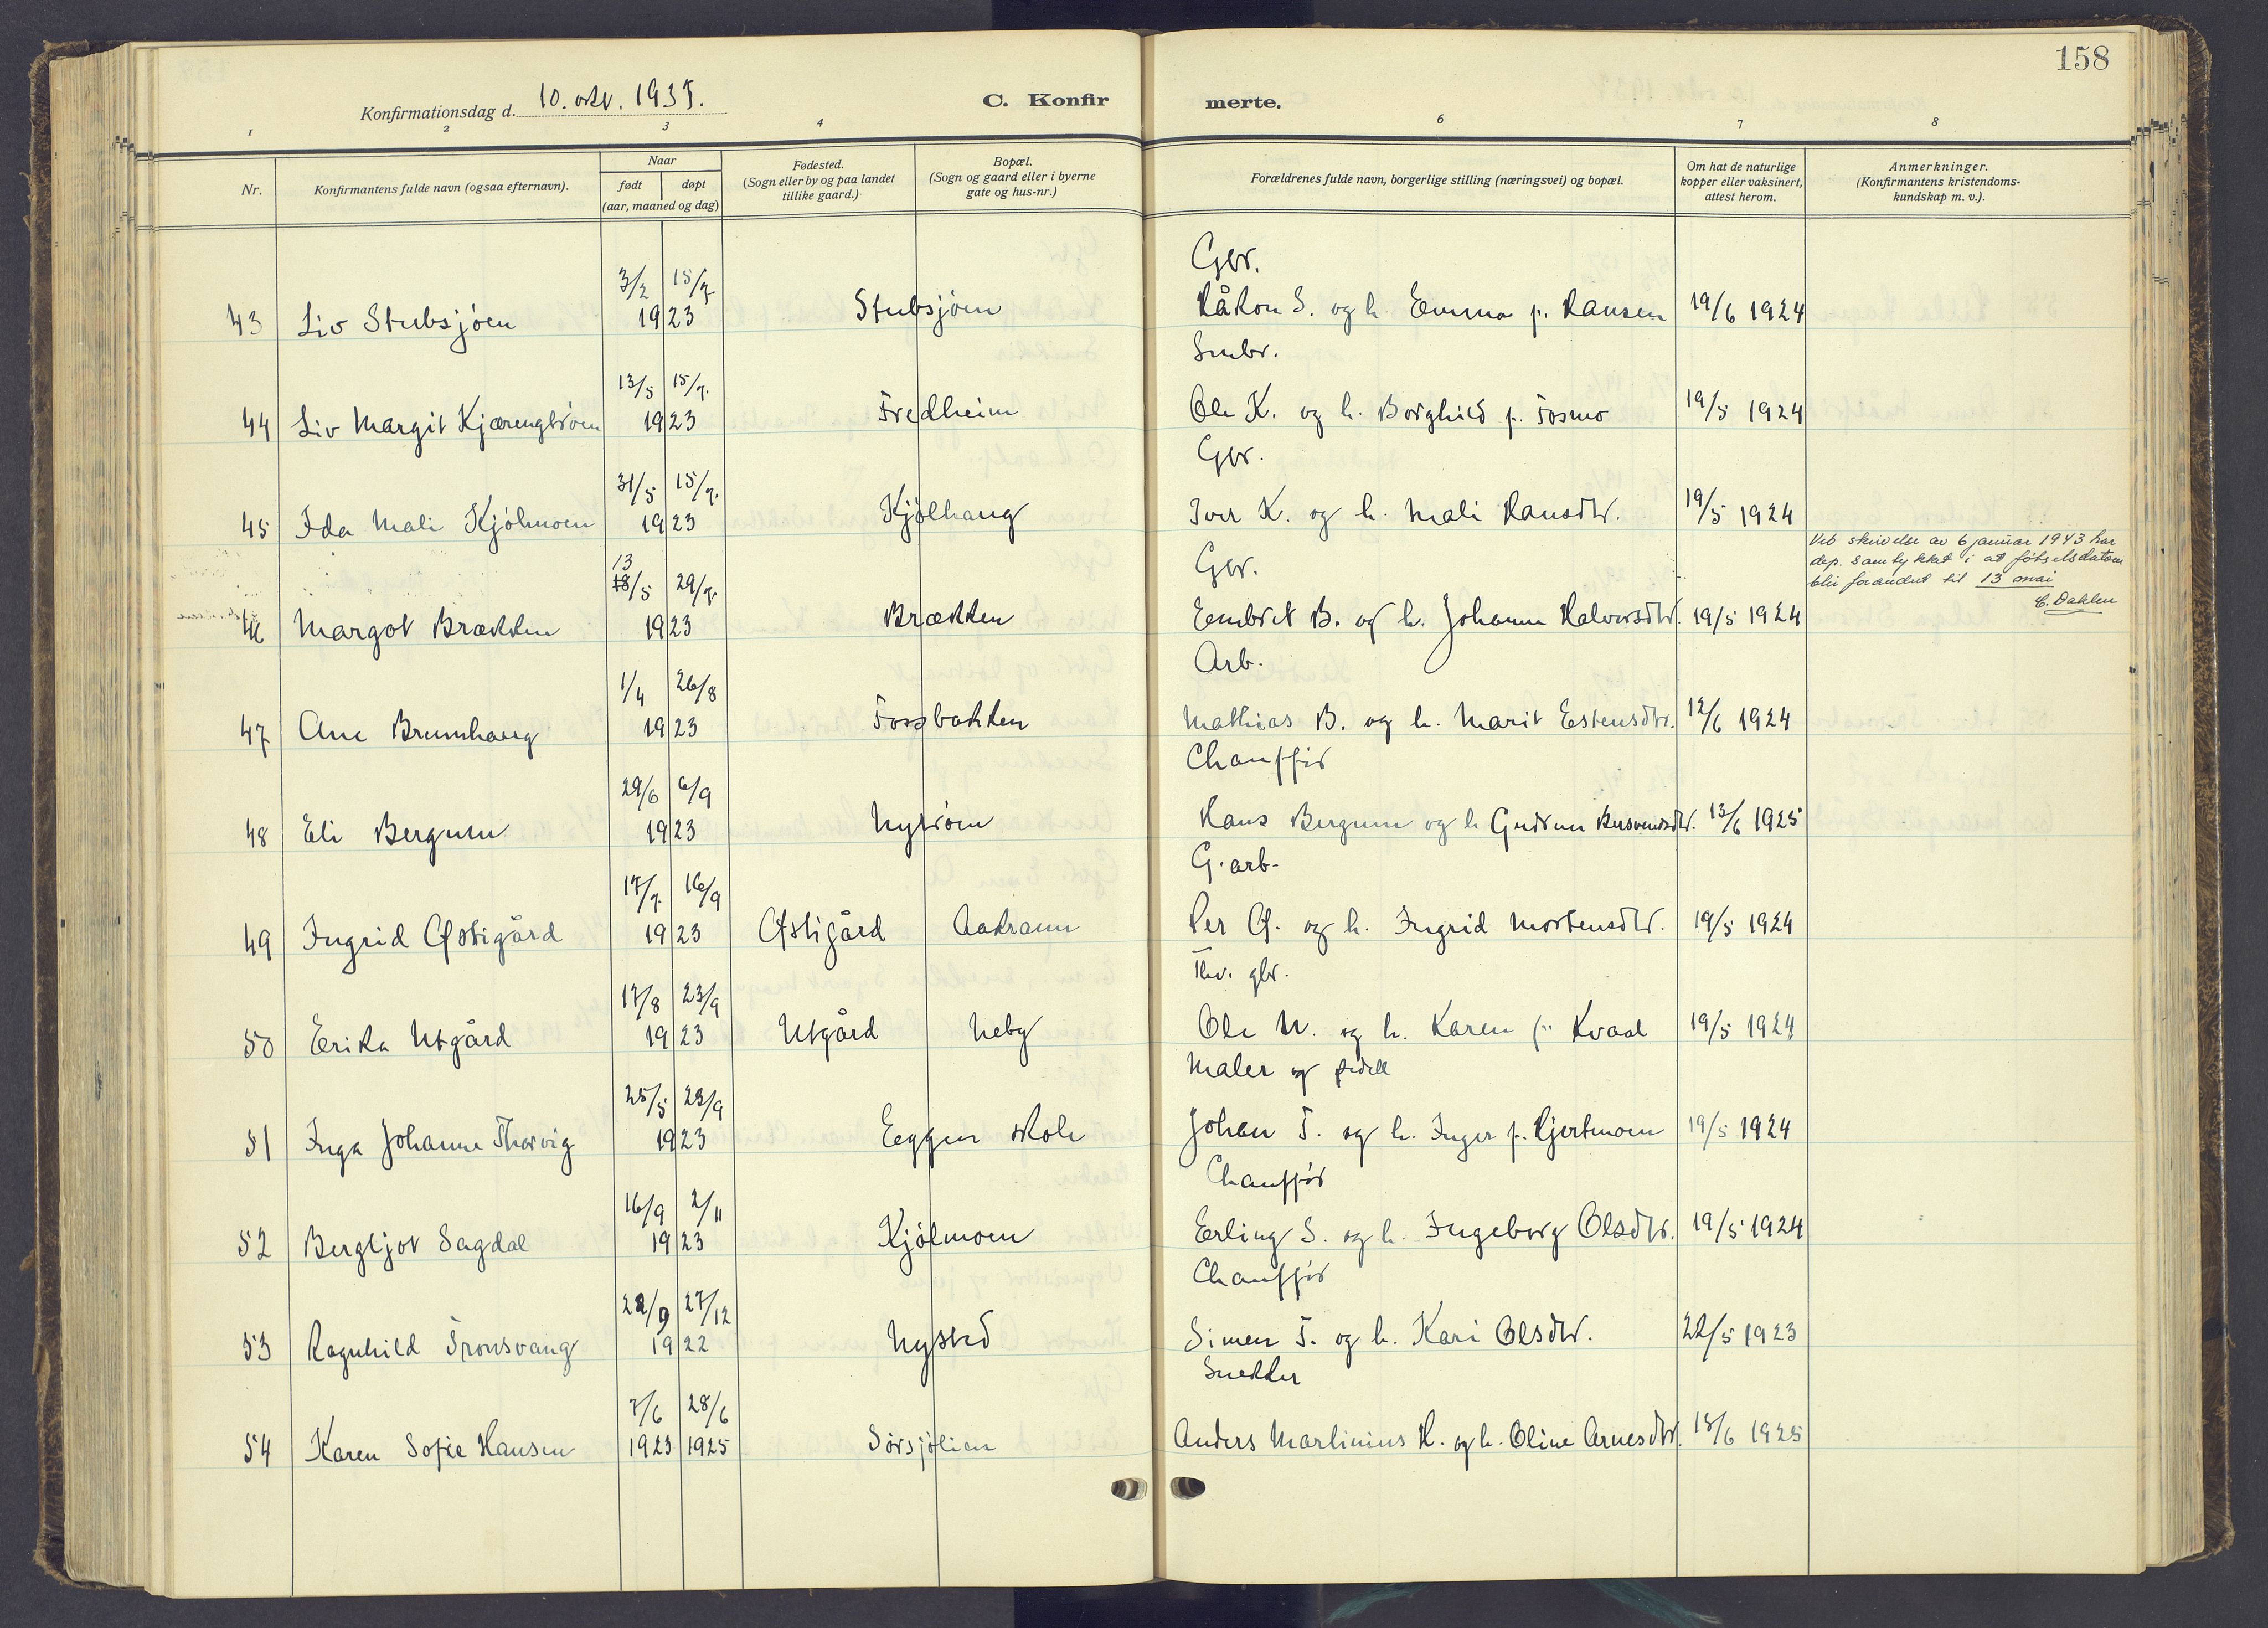 158
Konfirmationsdag d. 10. okt. 1937.
C. Konfirmerte.
1 2 3 4 6 7 8
Nr.
Konfirmantens fulde navn (ogsaa efternavn).
Naar
født døpt
(aar, maaned og dag)
Fødested.
(Sogn eller by og paa landet
tillike gaard.)
Bopæl.
(Sogn og gaard eller i byerne
gate og hus-nr.)
Forældrenes fulde navn, borgerlige stilling (næringsvei) og bopæl.
Om hat de naturlige
kopper eller vaksinert,
attest herom.
Anmerkninger.
(Konfirmantens kristendoms-
kundskap m. v.).
3/2 15/7 Gbr.
43 Liv Stubsjøen 1923 Stubsjøen Håkon S. og h. Emma f. Hansen 19/6 1924
13/5 15/7. Smbr.
44 Liv Margit Kjærengtrøen 1923 Fredheim Ole K. og h. Borghild f. Fosmo 19/5 1924
31/5 15/7. Gbr.
45 Ida Mali Kjølmoen 1923 Kjølhaug Iver K. og h. Mali Hansdtr. 19/5 1924
Ved skrivelse av 6 januar 1943 har
dep. samtykket i at fødselsdatoen
blir forandret til 13 mai
E. Dahlen
13
18/5 29/7. Gbr.
46 Margot Brækken 1923 Brækken Embret B. og h. Johanne Halvorsdtr. 19/5 1924
1/4 26/8 Arb.
47 Ane Brunhaug 1923 Fossbakken Mathias B. og h. Marit Estensdtr. 12/6 1924
29/6 6/9 Chauffør
48 Eli Bergum 1923 Nytrøen Hans Bergum og h Gudrun Bersvendsdtr. 13/6 1925
17/7. 16/9 G.arb.
49 Ingrid Østigård 1923 Østigård Aakrann Per Ø. og h. Ingrid Mortensdtr. 19/5 1924
17/8 23/9 Thv. gbr.
50 Erika Utgård 1923 Utgård Neby Ole U. og h. Karen f. Kvaal 19/5 1924
25/5 23/9 Maler og pedell
51 Inga Johanne Thorvig 1923 Eggen skole Johan T. og h. Inger f. Hjertmoen 19/5 1924
16/9 2/11 Chauffør
52 Bergljot Sagdal 1923 Kjølmoen Erling S. og h. Ingeborg Olsdtr. 19/5 1924
22/9 27/12 Chauffør
53 Ragnhild Tronsvang 1922 Nysted Simen T. og h. Kari Olsdtr. 22/5 1923
7/6 28/6 Snekker
54 Karen Sofie Hansen 1923 1925 Sørsjølien Anders Martinius H. og h. Oline Arnesdtr. 18/6 1925